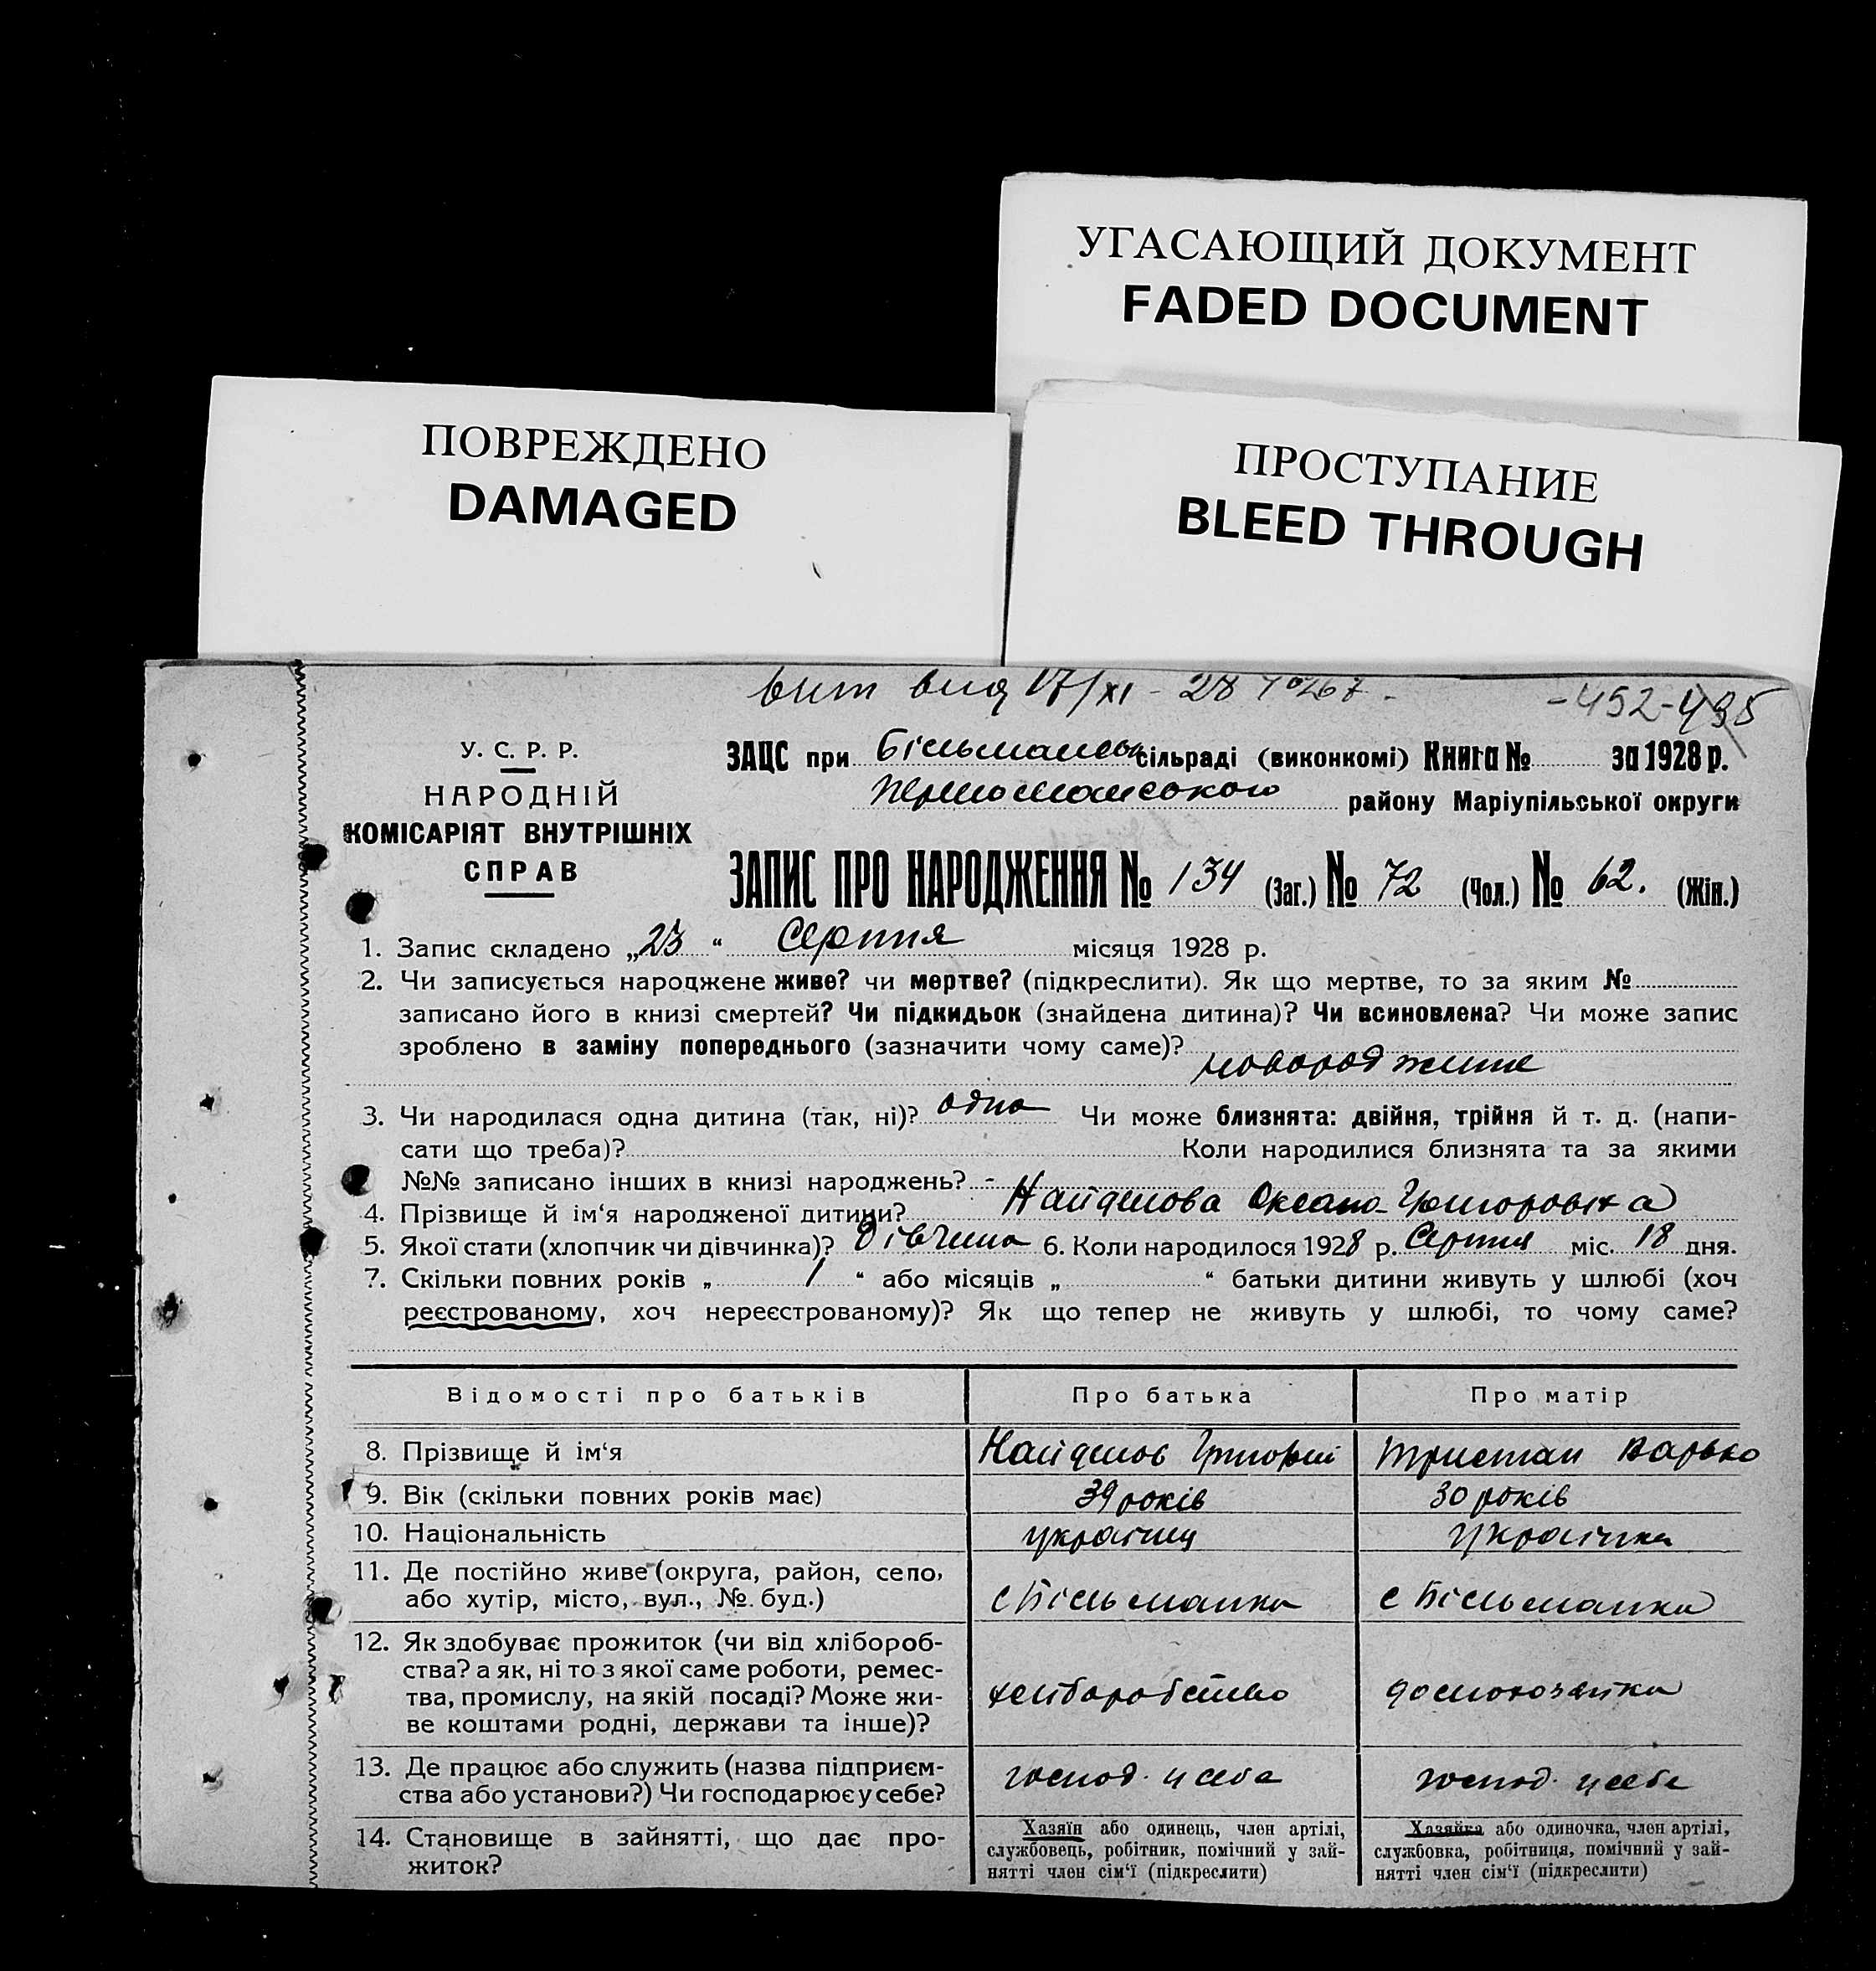 УГАСАЮЩИЙ ДОКУМЕНТ
FADED DOCUMENT
ПОВРЕЖДЕНО
DAMAGED
ПРОСТУПАНИЕ
BLEED THROUGH
вит вид 17/XI - 28
-452-435
У. С. Р. Р.
НАРОДНІЙ
КОМІСАРІЯТ ВНУТРІШНІХ
СПРАВ
ЗАЦС при Більманськ сільраді (виконкомі) Книга № за 1928 р.
району Маріупільської округи
ЗАПИС ПРО НАРОДЖЕННЯ № 134 (Заг.) № 72 (Чол.) № 62. (Жін.)
1. Запис складено „23“ Серпня місяця 1928 р.
2. Чи записується народжене живе? чи мертве? (підкреслити). Як що мертве, то за яким №
записано його в книзі смертей? Чи підкидьок (знайдена дитина)? Чи всиновлена? Чи може запис
зроблено в заміну попереднього (зазначити чому саме)?
новород жите
3. Чи народилася одна дитина (так, ні)? одна Чи може близнята: двійня, трійня й т. д. (напи-
сати що треба)? Коли народилися близнята та за якими
№№ записано інших в книзі народжень? -
4. Прізвище й ім‘я народженої дитини? Найденова Оксана Григоровна
5. Якої стати (хлопчик чи дівчинка)? Дівчина 6. Коли народилося 1928 р. Серпня міс. 18 дня.
7. Скільки повних років „ 1 “ або місяців „ “ батьки дитини живуть у шлюбі (хоч
реєстрованому, хоч нереєстрованому)? Як що тепер не живуть у шлюбі, то чому саме?
Відомості про батьків Про батька Про матір
8. Прізвище й ім‘я Найденов Григорій Тристан Варька
9. Вік (скільки повних років має) 39 років 30 років
10. Національність українец українка
11. Де постійно живе (округа, район, село,
або хутір, місто, вул., №. буд.) с Більманка с Більманка
12. Як здобуває прожиток (чи від хлібороб-
ства? а як, ні то з якої саме роботи, ремес-
тва, промислу, на якій посаді? Може жи- хліборобство домохозяйка
ве коштами родні, держави та інше)?
13. Де працює або служить (назва підприєм-
ства або установи?) Чи господарює у себе? господ. у себе господ. у себе
14. Становище в зайнятті, що дає про-
житок?
Хазяїн або одинець, член артілі,
службовець, робітник, помічний у зай-
нятті член сім‘ї (підкреслити)
Хазяйка або одиночка, член артілі,
службовка, робітниця, помічний у зай-
нятті член сім‘ї (підкреслити)